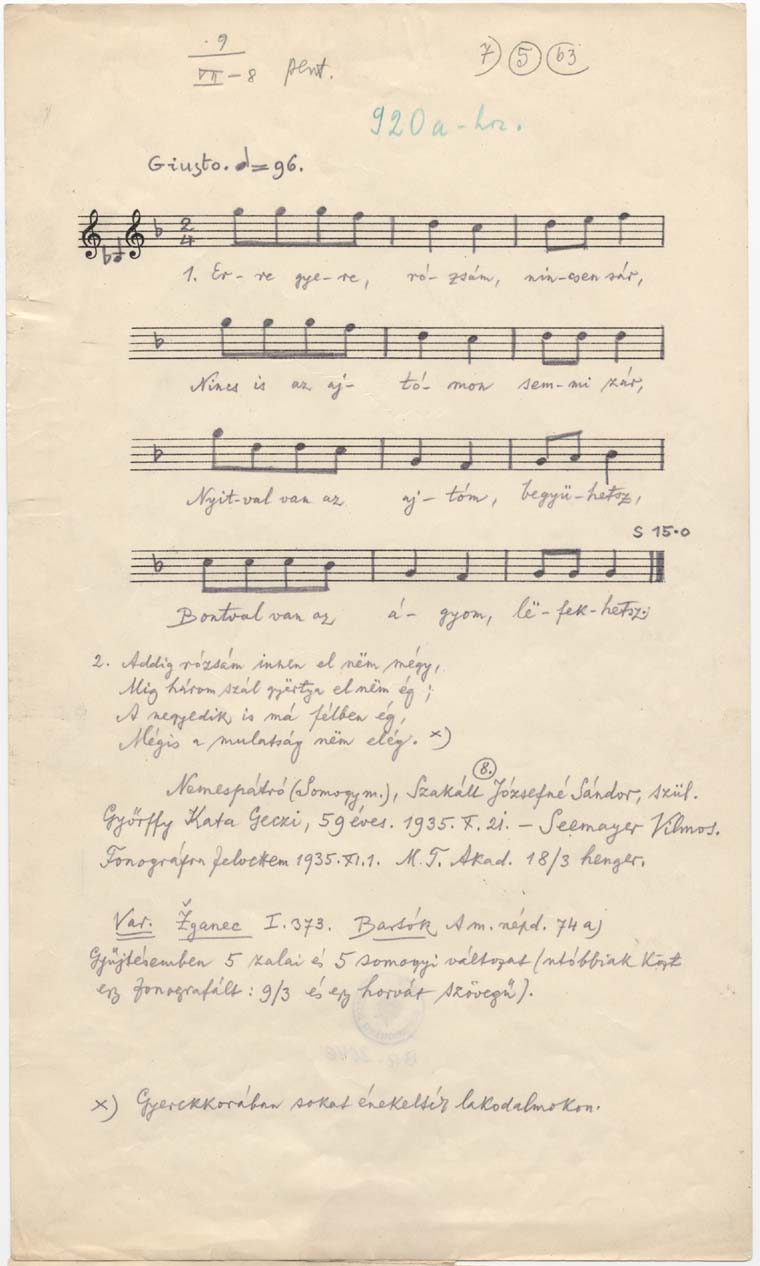 9
VII-8 pent. 7) 5 b3
920a-hoz.
Giusto. ♩=96.
2
4
1. Er-re gye-re, ró-zsám, nin-csen sár,
Nincs is az aj-tó-mon sem-mi zár,
Nyit-val van az aj-tóm, begyü-hetsz,
S 15.0
Bontval van az á-gyom, lë-fek-hetsz.
2. Addig rózsám innen el nëm mégy,
Mig három szál gyërtya el nëm ég;
A negyedik is má félben ég,
Mégis a mulatság nëm elég. x)
8.
Nemespátró (Somogy m.), Szakáll Józsefné Sándor, szül.
Győrffy Kata Geczi, 59 éves. 1935.X.21. — Seemayer Vilmos.
Fonográfra felvettem 1935.XI.1. M.T. Akad. 18/3 henger.
Var. Žganec I.373. Bartók A m. népd. 74 a)
Gyűjtésemben 5 zalai és 5 somogyi változat (utóbbiak közt
egy fonografált: 9/3 és egy horvát szövegű).
x) Gyerekkorában sokat énekelték lakodalmokon.